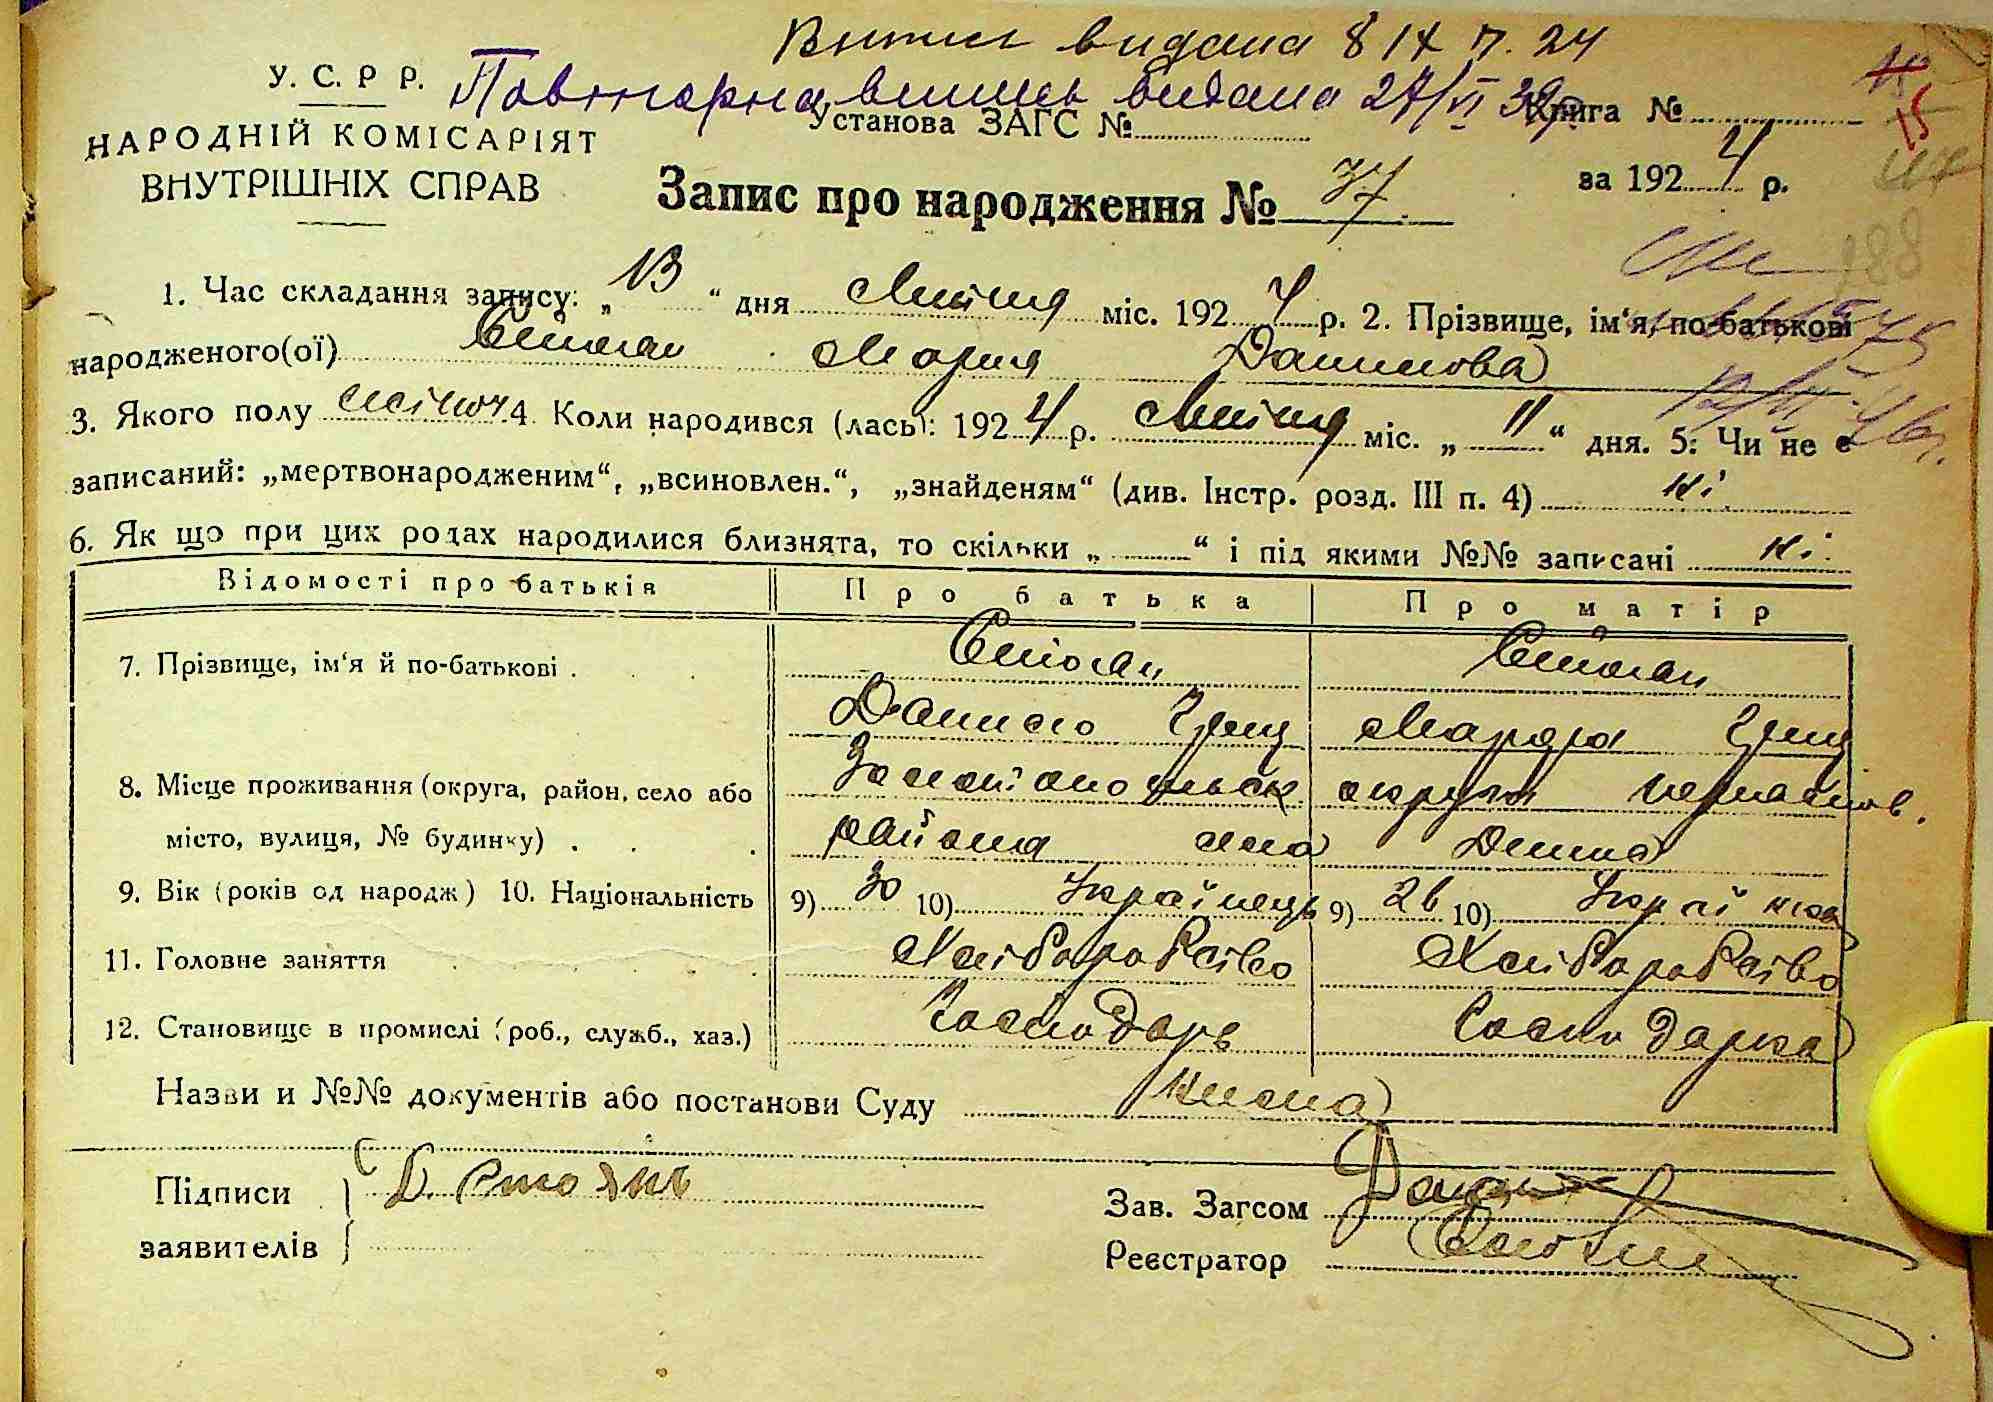 Випис видана 8 IX п. 24
У. С. Р Р. Повторна випись видана 27/VI 39р
Установа ЗАГС № Книга №
15
НАРОДНІЙ КОМІСАРІЯТ
ВНУТРІШНІХ СПРАВ
Запис про народження № 37 за 1924 р.
188
1. Час складання запису: „13“ дня Липня міс. 1924 р. 2. Прізвище, ім‘я, по-батькові
народженого(ої) Стоян Мария Данилова
3. Якого полу жіноч 4. Коли народився (лась): 1924 р. Липня міс. „11“ дня. 5: Чи не є
записаний: „мертвонародженим“, „всиновлен.“, „знайденям“ (див. Інстр. розд. III п. 4) ні
6. Як що при цих родах народилися близнята, то скільки „ “ і під якими №№ записані ні
Відомості про батьків Про батька Про матір
7. Прізвище, ім‘я й по-батькові . Стоян Стоян
Данило Гриц Марфа Гриц
8. Місце проживання (округа, район, село або округи
місто, вулиця, № будинку) . района села
9. Вік (років од народж) 10. Національність 9) 30 10) Українець 9) 26 10) Українка
11. Головне заняття Хліборобство Хліборобство
12. Становище в промислі (роб., служб., хаз.) Господарь Господарка
Назви и №№ документів або постанови Суду Нема
Підписи Д. Стоянъ
Зав. Загсом
заявителів
Реєстратор